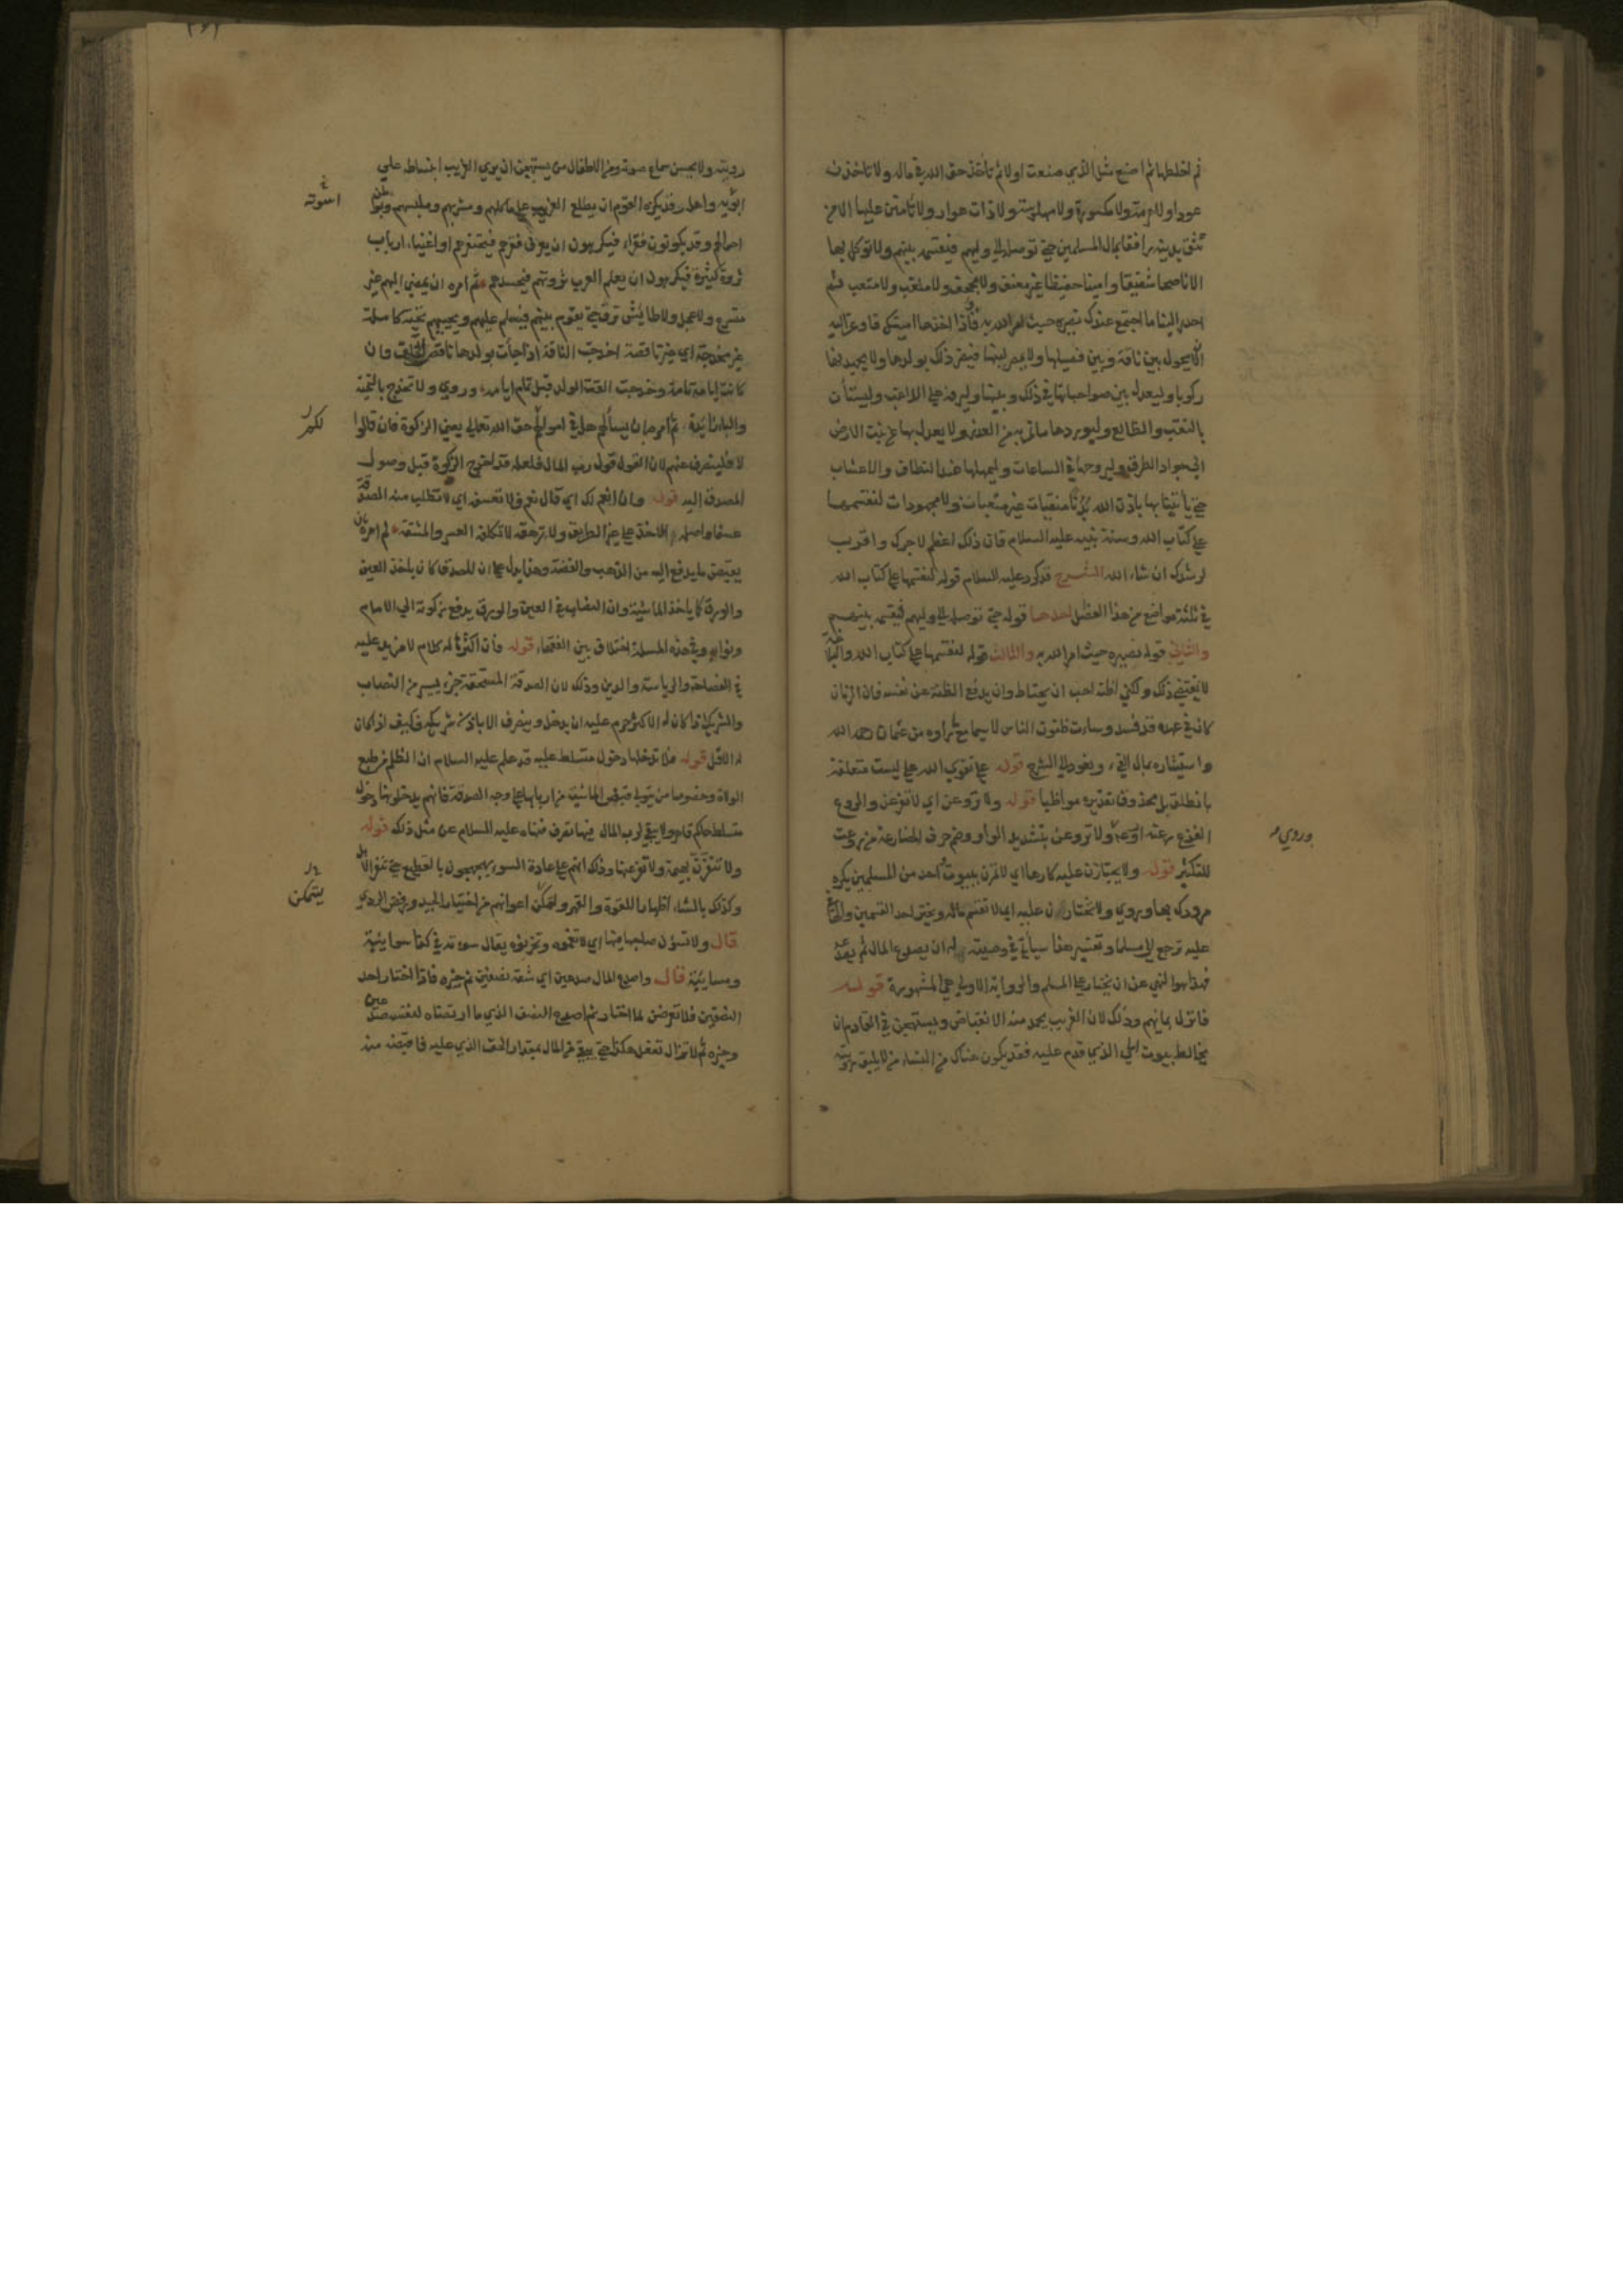 ثم اخلطهما ثم اصنع مثل الذي صنعت اولا ثم تأخذ حق الله في ماله ولا تاخذن
عودا ولا هرمة ولا مكسورة ولا مهلوسة ولا ذات عوار ولا تأمنن عليها الا من
تثق بدينه رافقا بمال المسلمين حتى توصله الى وليهم فيقسمه بينهم ولا توكل بها
الا ناصحا شفيقا وامينا حفيظا غير معنف ولا مجحف ولا ملغب ولا متعب ثم
احدر الينا ما اجتمع عندك نصيره حيث امر الله به فاذا اخذها امينك فاوعز اليه
الا يحول بين ناقة وبين فصيلها ولا يمصر لبنها فيضر ذلك بولدها ولا يجهدنها
ركوبا وليعدل بين صواحباتها في ذلك وبينها وليرفه على اللاغب وليستأن
بالنقب والظالع وليوردها ما تمر به من الغدر ولا يعدل بها عن نبت الارض
الى جواد الطرق وليروحها في الساعات وليمهلها عند النطاف والاعشاب
حتى يأتينا بها باذن الله بدنا منقيات غير متعبات ولا مجهودات لنقسمها
على كتاب الله وسنة نبيه عليه السلام فان ذلك اعظم لاجرك واقرب
لرشدك ان شاء الله الشرح قد كرر عليه السلام قوله لنقسمها على كتاب الله
في ثلثة مواضع من هذا الفصل احدها قوله حتى توصله الى وليهم فيقسمه بينهم
والثاني قوله نصيره حيث امر الله به والثالث قوله لنقسمها على كتاب الله والبلاغة
لا تقتضي ذلك ولكني اظنه احب ان يحتاط وان يدفع الظنة عن نفسه فان الزمان
كان في عهده قد فسد وساءت ظنون الناس لا سيما مع ما راوه من عثمان رحمه الله
واستيثاره بمال الفيء ونعود الى الشرح قوله على تقوى الله على ليست متعلقة
بانطلق بل بمحذوف تقديره مواظبا قوله ولا تروعن اي لا تفزعن والروع
الفزع رعته اروعه ولا تروعن بتشديد الواو وضم حرف المضارعة من روعت
وروي
للتكثير قوله ولا يجتازن عليه كارها اي لا تمرن ببيوت احد من المسلمين يكره
مرورك بها وروي ولا تختارن عليه اي لا تقسم ماله وتختر احد القسمين والهاء في
عليه ترجع الى مسلما وتفسير هذا سيأتي في وصيته له ان يصدع المال ثم يصدعه
فهذا هو النهي عن ان يختار على المسلم والرواية الاولى هي المشهورة قوله
فانزل بمائهم وذلك لان الغريب يحمد منه الانقباض ويستهجن في القادم ان
يخالط بيوت الحي الذي قدم عليه فقد يكون هناك من النساء من لا يليق رؤيته
رويته ولا يحسن سماع صوته ومن الاطفال من يستهجن ان يرى الغريب انبساطه على
ابويه واهله وقد يكره القوم ان يطلع الغريب على ماكلهم ومشربهم وملبسهم وبواطن
احوالهم وقد يكونون فقراء فيكرهون ان يعرف فقرهم فيحتقرهم او اغنياء ارباب
ثروة كثيرة فيكرهون ان يعلم الغريب ثروتهم فيحسدهم ثم امره ان يمضي اليهم غير
متسرع ولا عجل ولا طائش نزق حتى يقوم بينهم فيسلم عليهم ويحييهم تحية كاملة
غير مخدجة اي غير ناقصة اخدجت الناقة اذا جاءت بولدها ناقص الخلق وان
كانت ايامه تامة وخدجت القت الولد قبل تمام ايامه وروي ولا تخدج بالتحية
والباء زائدة ثم امره بان يسألهم هل في اموالهم حق الله تعالى يعني الزكوة فان قالوا
لا فلينصرف عنهم لان القول قول رب المال فلعله قد اخرج الزكوة قبل وصول
المصدق اليه قوله وان انعم لك اي قال نعم ولا تعسفه اي لا تطلب منه الصدقة
عسفا واصله الاخذ على غير الطريق ولا ترهقه لا تكلفه العسر والمشقة ثم امره ان
يقبض ما يدفع اليه من الذهب والفضة وهذا يدل على ان المصدق كان ياخذ العين
والورق كما ياخذ الماشية وان النصاب في العين والورق يدفع زكوته الى الامام
ونوابه وفي هذه المسلة اختلاف بين الفقهاء قوله فان اكثرها له كلام لا مزيد عليه
في الفصاحة والرياسة والدين وذلك لان الصدقة المستحقة جزء يسير من النصاب
والشريك اذا كان له الاكثر حرم عليه ان يدخل ويتصرف الا باذن شريكه فكيف اذا كان
له الاقل قوله فلا تدخلها دخول متسلط عليه قد علم عليه السلام ان الظلم من طبع
الولاة وخصوصا من يتولى قبض الماشية من اربابها على وجه الصدقة فانهم يدخلونها دخول
متسلط حاكم قاهر ولا يبقى لرب المال فيها تصرف فنهاه عليه السلام عن مثل ذلك قوله
ولا تنفرن بهيمة ولا تفزعنها وذلك انهم على عادة السوء يهجهجون بالقطيع حتى تنفر الابل
وكذلك بالشاء اظهارا للقوة والقهر وليتمكن اعوانهم من اختيار الجيد ورفض الردي
يتمكن
قال ولا تسوءن صاحبها فيها اي لا تغموه وتحزنوه يقال سوءته في كذا سوائية
ومسائية قال واصدع المال صدعين اي شقه نصفين ثم خيره فاذا اختار احد
النصفين فلا تعرضن لما اختار ثم اصدع النصف الذي ما ارتضاه لنفسه صدعين
وخيره ثم لا تزال تفعل هكذا حتى يبقى من المال بمقدار الحق الذي عليه فاقبضه منه